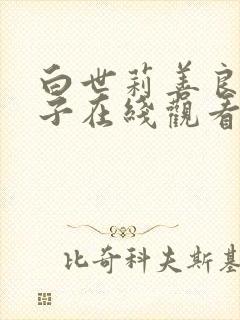 白世莉善良
子在綫觀看
比奇科夫斯基